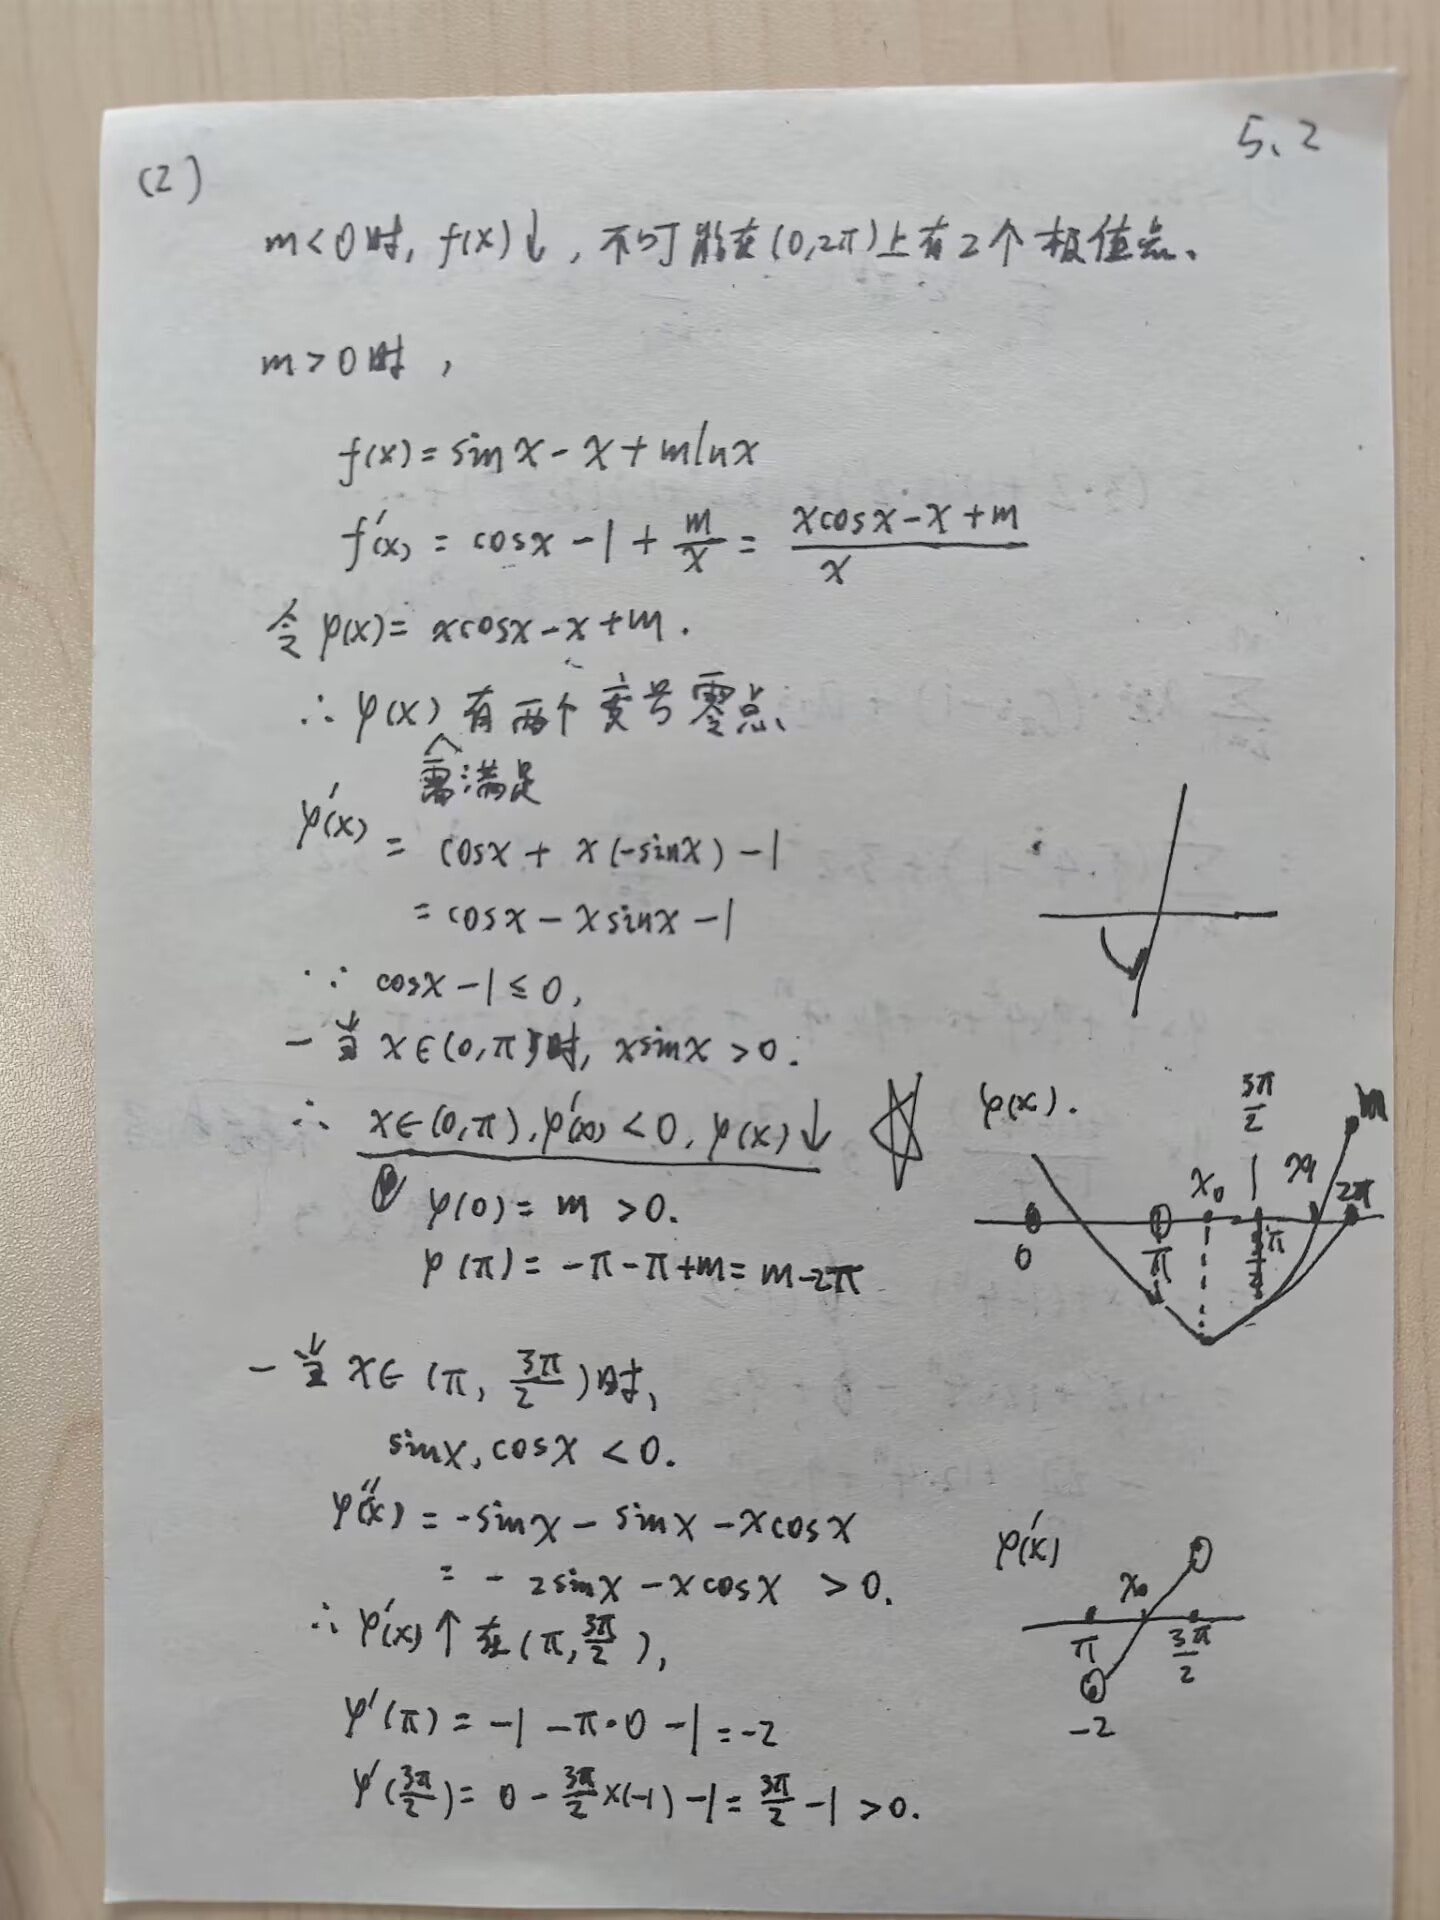 5.2
(2)
m<0时, f(x)↓, 不可能在(0,2π)上有2个极值点.
m>0时,
f(x)=sinx-x+mlnx
f'(x)=cosx-1+m/x=(xcosx-x+m)/x
令φ(x)=xcosx-x+m.
∴φ(x)有两个变号零点
需满足
φ'(x)=cosx+x(-sinx)-1
=cosx-xsinx-1
∵cosx-1≤0,
-当x∈(0,π)时, xsinx>0.
∴x∈(0,π), φ'(x)<0, φ(x)↓
φ(0)=m>0.
φ(π)=-π-π+m=m-2π
φ(x).
3π/2
m
x₀
x₁
2π
0
π
-当x∈(π, 3π/2)时,
sinx, cosx<0.
φ''(x)=-sinx-sinx-xcosx
=-2sinx-xcosx>0.
∴φ'(x)↑在(π, 3π/2),
φ'(π)=-1-π·0-1=-2
φ'(3π/2)=0-3π/2×(-1)-1=3π/2-1>0.
φ'(x)
x₀
π
3π/2
-2